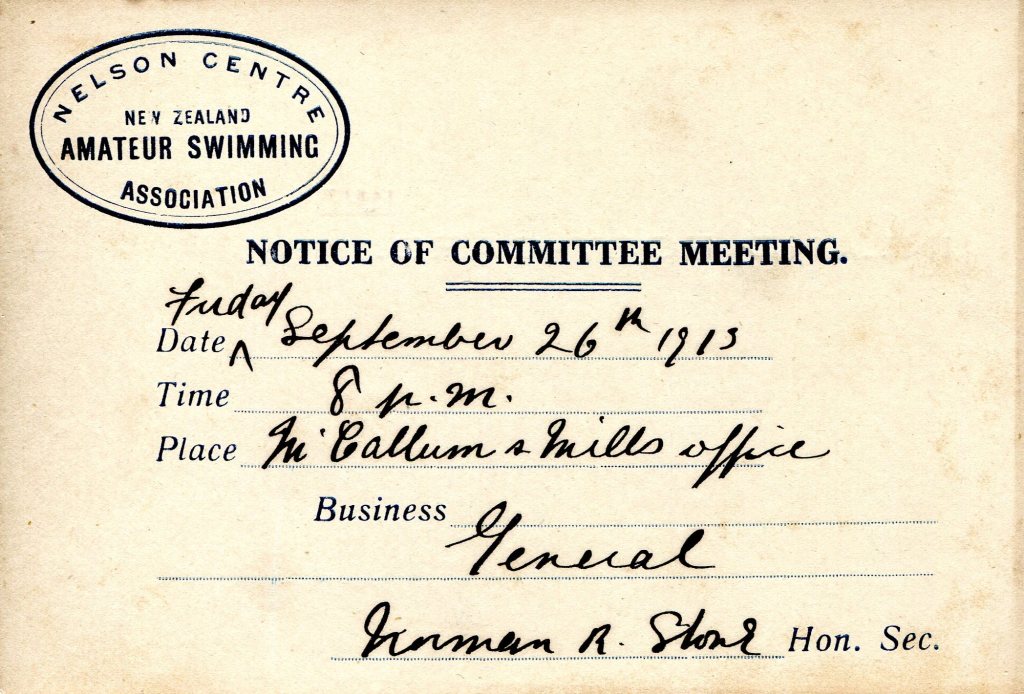 NELSON CENTRE
NEW ZEALAND
AMATEUR SWIMMING
ASSOCIATION
NOTICE OF COMMITTEE MEETING.
Friday
Date ^ September 26th 1913
Time 8 p.m.
Place McCallum & Mills office
Business
General
Norman R. Stone Hon. Sec.